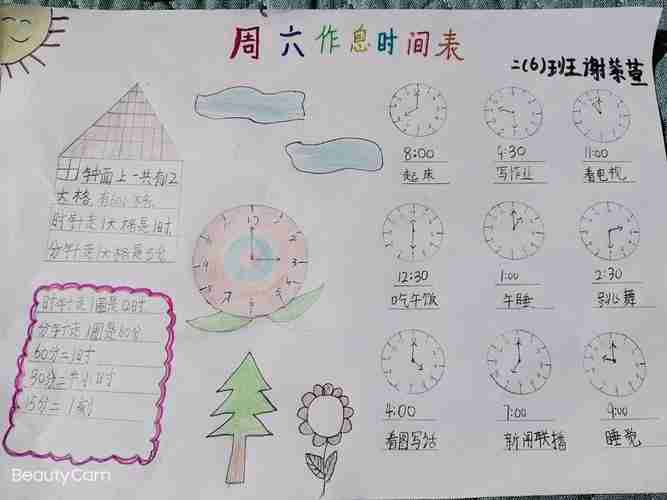 周六作息时间表
二(6)班谢紫萱
钟面上一共有12
大格,有60小格。
时针走1大格是1时
分针走1大格是5分
时针走1圈是12时
分针走1圈是60分
60分=1时
30分=半小时
15分=1刻
12
1
2
3
8:00
起床
9:30
写作业
11:00
看电视
12:30
吃午饭
1:00
午睡
2:30
跳舞
4:00
看图写话
7:00
新闻联播
9:00
睡觉
BeautyCam